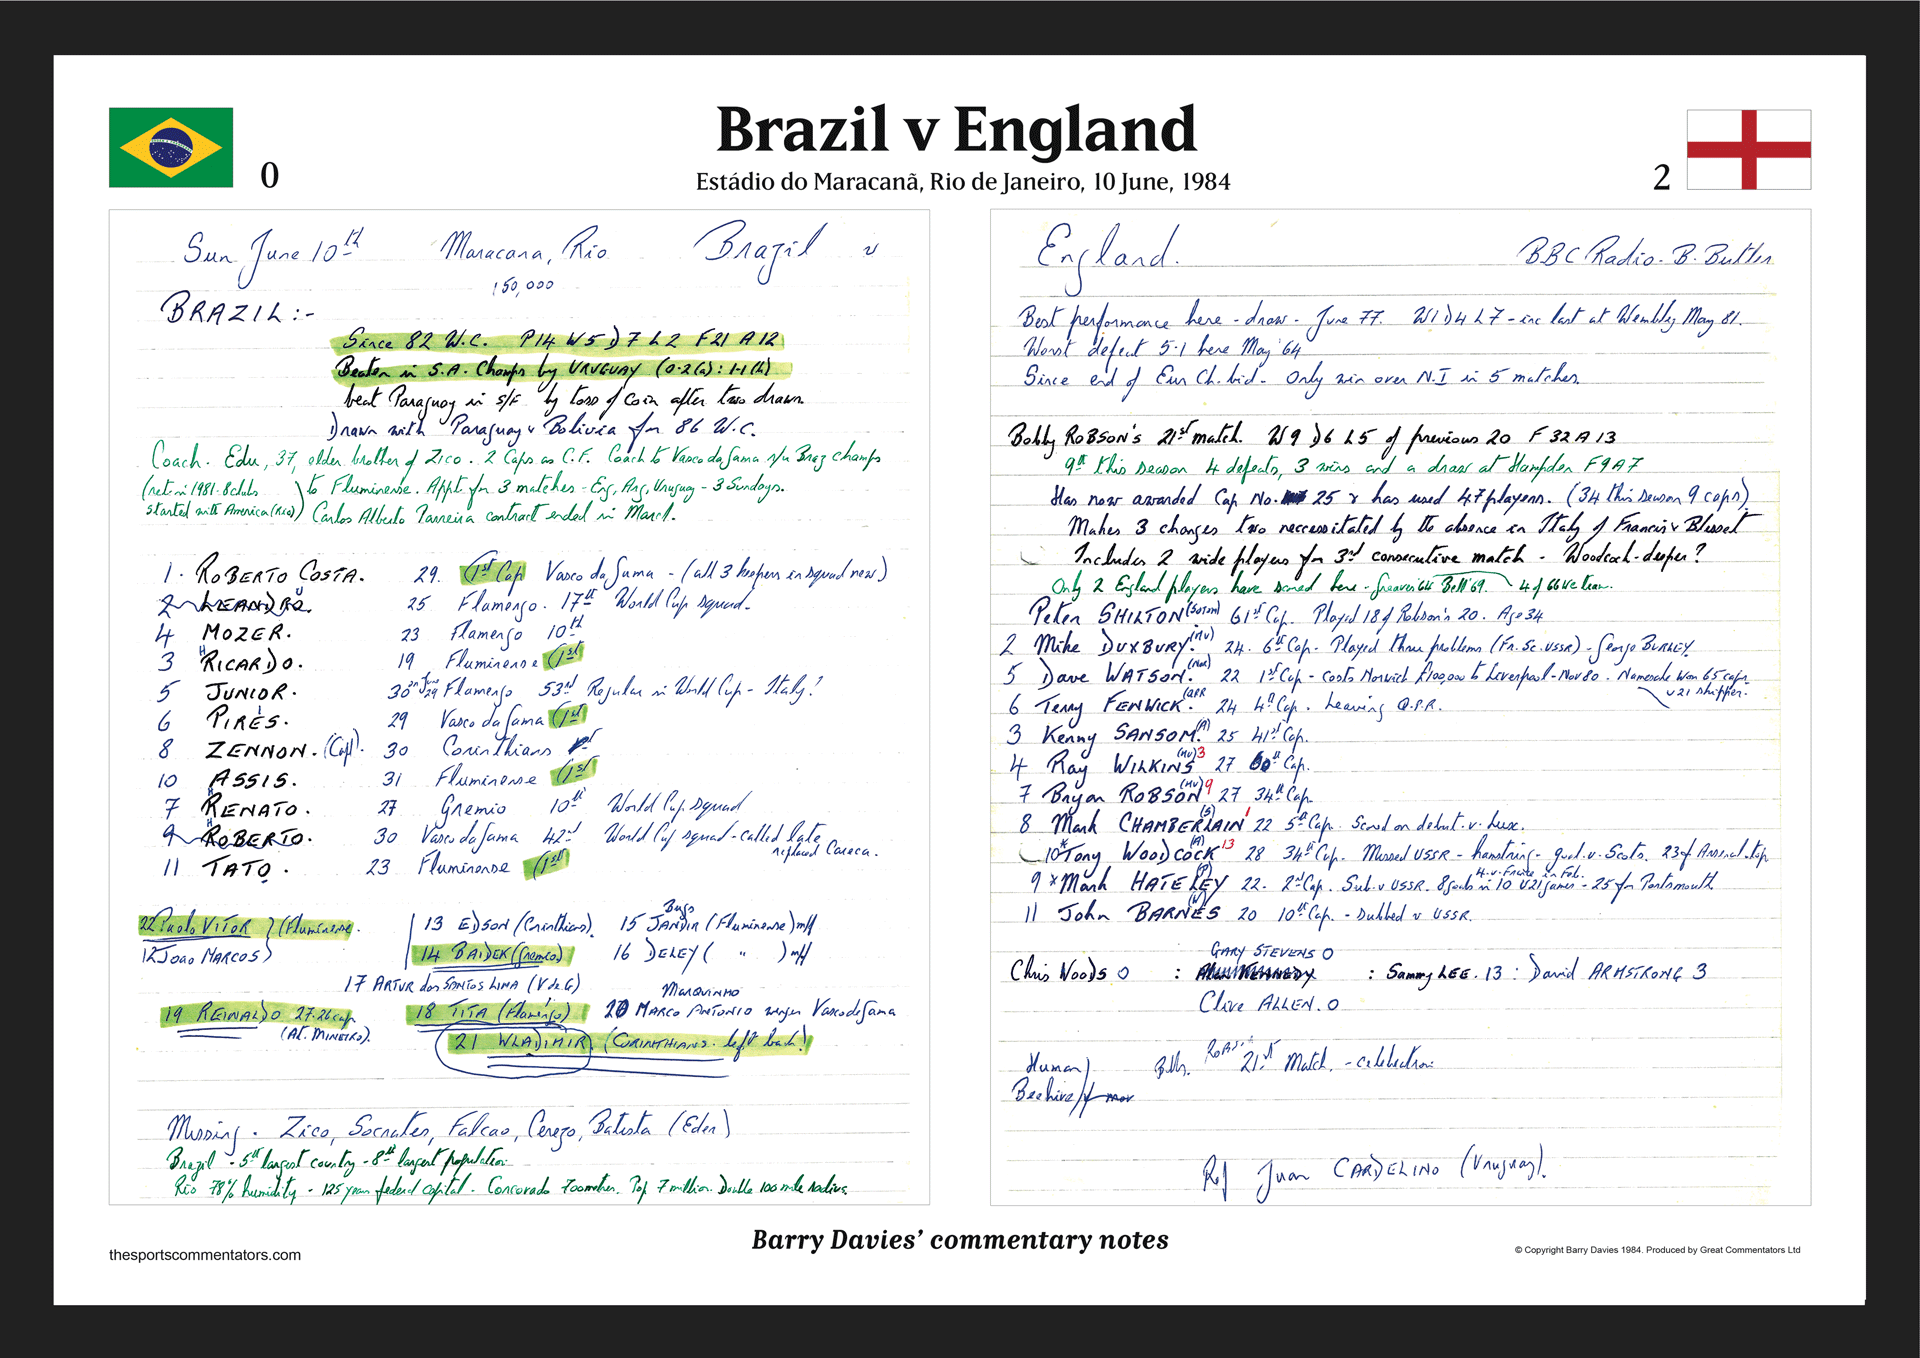 Brazil v England
Estádio do Maracanã, Rio de Janeiro, 10 June, 1984
0
2
Sun June 10th Maracana, Rio Brazil v
150,000
BRAZIL:-
Since 82 W.C. P14 W5 D7 L2 F21 A12
Beaten in S.A. Champs by URUGUAY (0-2(a): 1-1(h)
beat Paraguay in S/F by toss of coin after two drawn
Drawn with Paraguay & Bolivia for 86 W.C.
Coach. Edu, 37, elder brother of Zico. 2 Caps as C.F. Coach to Vasco da Gama s/u Braz champs
(ret in 1981-8 clubs ) to Fluminense. Appt for 3 matches - Eng, Arg, Uruguay - 3 Sundays.
started with America (Rio)) Carlos Alberto Parreira contract ended in March.
1. ROBERTO COSTA. 29. (1st Cap Vasco da Gama - (all 3 keepers in squad new)
2 LEANDRO. 25 Flamengo. 17th World Cup squad.
4 MOZER. 23 Flamengo 10th
3 RICARDO. 19 Fluminense (1st
5 JUNIOR. 30 on June 29 Flamengo 53rd Regular in World Cup - Italy?
6 PIRES. 29 Vasco da Gama (1st
8 ZENNON. (Capt). 30 Corinthians
10 ASSIS. 31 Fluminense (1st
7 RENATO. 27 Gremio 10th World Cup squad
9 ROBERTO. 30 Vasco da Gama 42nd World Cup squad - called late
replaced Careca.
11 TATO. 23 Fluminense (1st
22 Paolo VITOR } (Fluminense.
12 Joao MARCOS)
13 EDSON (Corinthians).
14 BAIDEK (Gremio)
15 JANDIR (Fluminense) m/f
16 DELEY ( " ) m/f
17 ARTUR dos SANTOS LIMA (V de G)
19 REINALDO 27. 26 cap
(At. MINEIRO).
18 TITA (Flamengo)
MARQUINHO
20 MARCO ANTONIO winger Vasco da Gama
21 WLADIMIR (CORINTHIANS. left back!
Missing. Zico, Socrates, Falcao, Cerezo, Batista (Eder)
Brazil - 5th largest country - 8th largest population
Rio 78% humidity - 125 year federal capital. Corcovado 700 metres. Pop 7 million. Double 100 mile radius.
England. BBC Radio - B. Butler
Best performance here - draw - June 77. W1 D4 L7 - inc last at Wembley May 81.
Worst defeat 5-1 here May '64
Since end of Eur Ch. bid - Only win over N.I in 5 matches.
Bobby ROBSON's 21st match. W9 D6 L5 of previous 20 F32 A13
9th this season 4 defeats, 3 wins and a draw at Hampden F9 A7
Has now awarded Cap No. 25 & has used 47 players. (34 this season 9 caps)
Makes 3 changes two neccessitated by the absence in Italy of Francis & Blissett
Includes 2 wide players for 3rd consecutive match - Woodcock - deeper?
Only 2 England players have scored here - Greaves 64 Bell '69. 4 of 66 WC team.
Peter SHILTON (SOTON) 61st Cap. Played 18 of Robson's 20. Age 34
2 Mike DUXBURY. (MU) 24. 6th Cap - Played three problems (Fr. Sc. USSR) - George BURLEY
5 Dave WATSON. (Nor) 22 1st Cap - costs Norwich £100,000 to Liverpool - Nov 80. Namesake won 65 caps
U21 skipper.
6 Terry FENWICK. (QPR 24 4th Cap. Leaving Q.P.R.
3 Kenny SANSOM. (A) 25 41st Cap.
4 Ray WILKINS (MU) 3 27 60th Cap.
7 Bryan ROBSON (MU) 9 27 34th Cap.
8 Mark CHAMBERLAIN (S) 1 22 5th Cap. Scored on debut v. Lux.
10* Tony WOODCOCK (A) 13 28 34th Cap. Missed USSR - hamstring - goal v. Scots. 23 for Arsenal - top
4 v. France in Feb.
9 * Mark HATELEY (P) 22. 2nd Cap. Sub. v USSR. 8 goals in 10 U21 games - 25 for Portsmouth
11 John BARNES (W) 20 10th Cap. - Subbed v USSR.
GARY STEVENS 0
Chris WOODS 0 : Alan KENNEDY : Sammy LEE. 13 : David ARMSTRONG 3
Clive ALLEN. 0
Human) Bobby ROBSON 21st Match. - celebration
Beehive
Ref Juan CARDELINO (Uruguay).
Barry Davies' commentary notes
thesportscommentators.com
© Copyright Barry Davies 1984. Produced by Great Commentators Ltd